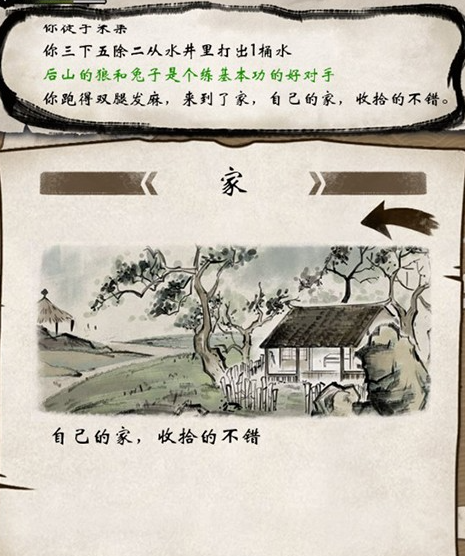 你三下五除二从水井里打出1桶水
后山的狼和兔子是个练基本功的好对手
你跑得双腿发麻，来到了家，自己的家，收拾的不错。
家
自己的家，收拾的不错